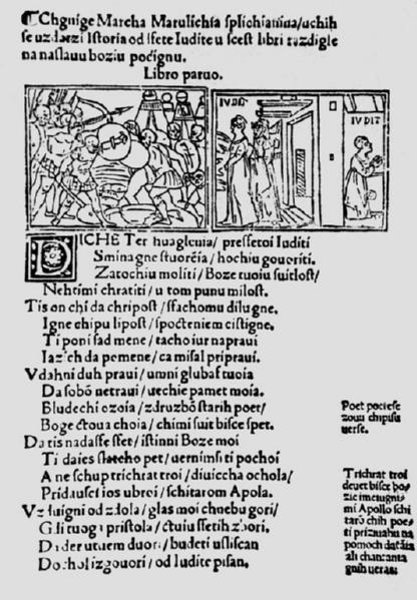 Chgnige Marcha Marulichia splichianina/uchih
se uzdarzi Istoria od Isfete Iudite u scest libri razdigle
na na slauu boziu počignu.
Libro paruo.
IVDIT
IVDIT
DICHE Ter huaglenia/ presfetoi Iuditi
Smina gne stuorēia/ hochiu gouoriti.
Zato chiu moliti/ Boze tuoiu suitlost/
Nehtimi chratiti/ u tom punu milost.
Ti s on chi da chripost/ ssachomu dilu gne.
I gne chipu lipost/ spočteniem čistigne.
Ti poni sad mene/ tacho iur naprau i
Iazich da pomene/ ca misal priprauí.
Vdahni duh praui/ umni glubaf tuoia
Da sobō ne traui/ uechie pamet moia.
Bludechi ozoia/ zdruzbō starih poet/
Boge čtoua choia/ chimi suit bisce spet.
Da ti s nadasse sfet/ istinni Boze moi
Ti daies slatcho pet/ uernim si ti pochoi
A ne schup trichrat troi/ diuiccha ochola/
Prid ausci ios ubroi/ s chitarom Apola.
glas moi chnebu gori/
Gdi tuogi pristola/
budeti uslisan
od Iudite pisan.
Poet pociese
zoui
uerse.
Trichrat troi
deuet bisce bo/
zic
mi Apollo schi
tarō chih poe/
ti
pomoch